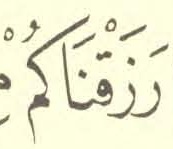 رَزَقْنَاكُمْ